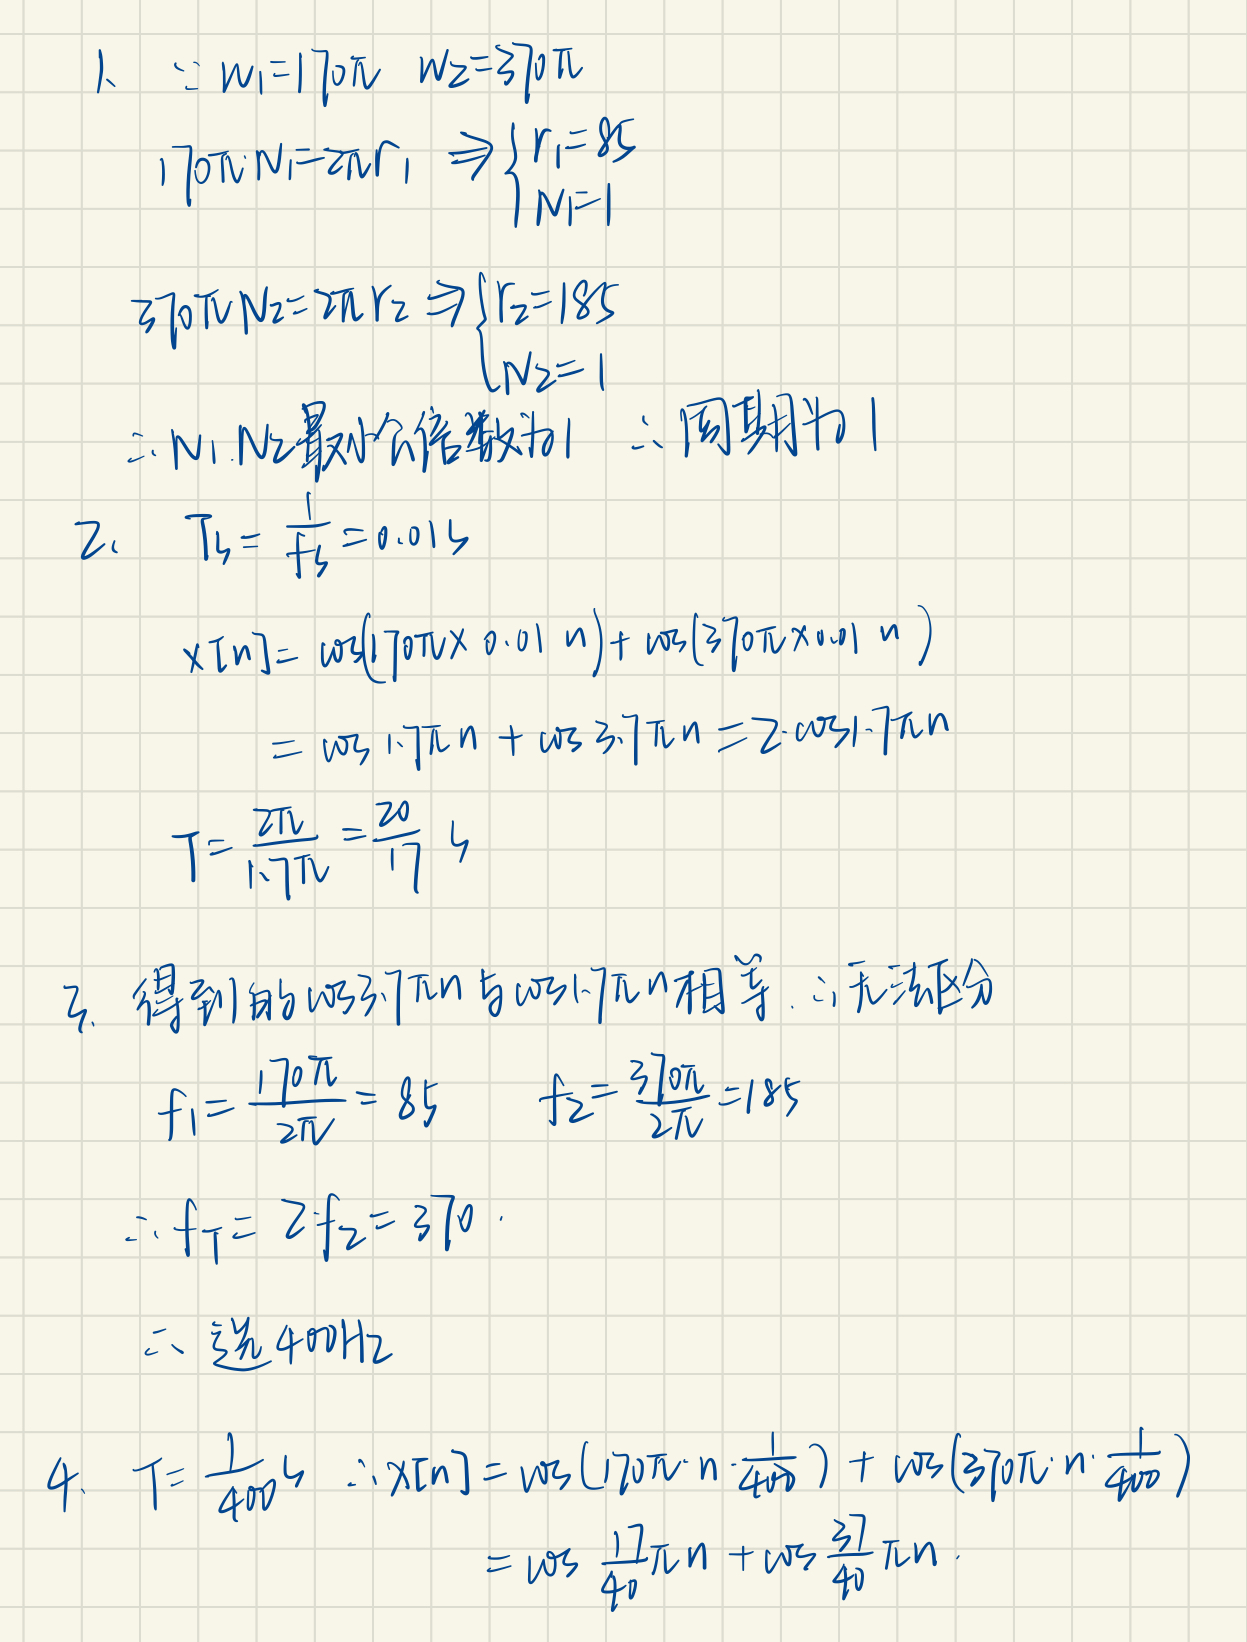 1、 ∵ w₁=170π w₂=370π
170π·N₁=2πr₁ ⇒ { r₁=85
N₁=1
370πN₂=2πr₂ ⇒ { r₂=185
N₂=1
∴ N₁.N₂最小公倍数为1 ∴ 周期为1
2、 Ts = 1/fs = 0.01s
x[n] = cos(170π×0.01 n) + cos(370π×0.01 n)
= cos 1.7πn + cos 3.7πn = 2·cos1.7πn
T = 2π/1.7π = 20/17 s
3、 得到的cos3.7πn与cos1.7πn相等.∴无法区分
f₁ = 170π/2π = 85 f₂ = 370π/2π = 185
∴ fT = 2·f₂ = 370.
∴ 选400Hz
4、 T = 1/400 s ∴ x[n] = cos(170π·n·1/400) + cos(370π·n·1/400)
= cos 17/40 πn + cos 37/40 πn.